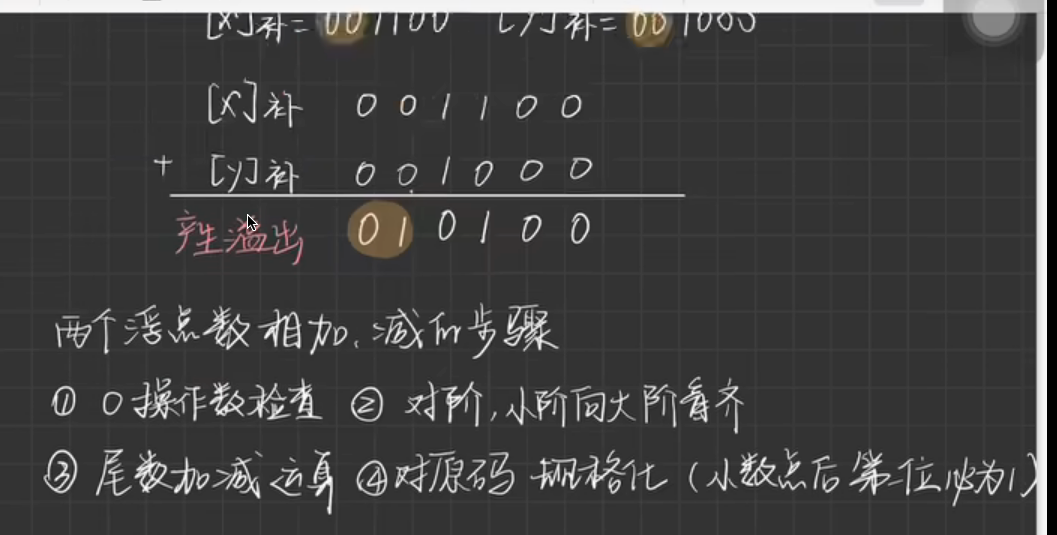 [X]补= 001100 [Y]补= 001000
[X]补 0 0 1 1 0 0
+ [y]补 0 0 1 0 0 0
产生溢出 0 1 0 1 0 0
两个浮点数相加、减的步骤
① 0操作数检查 ② 对阶,小阶向大阶看齐
③ 尾数加减运算 ④对原码 规格化 (小数点后第一位必为1)